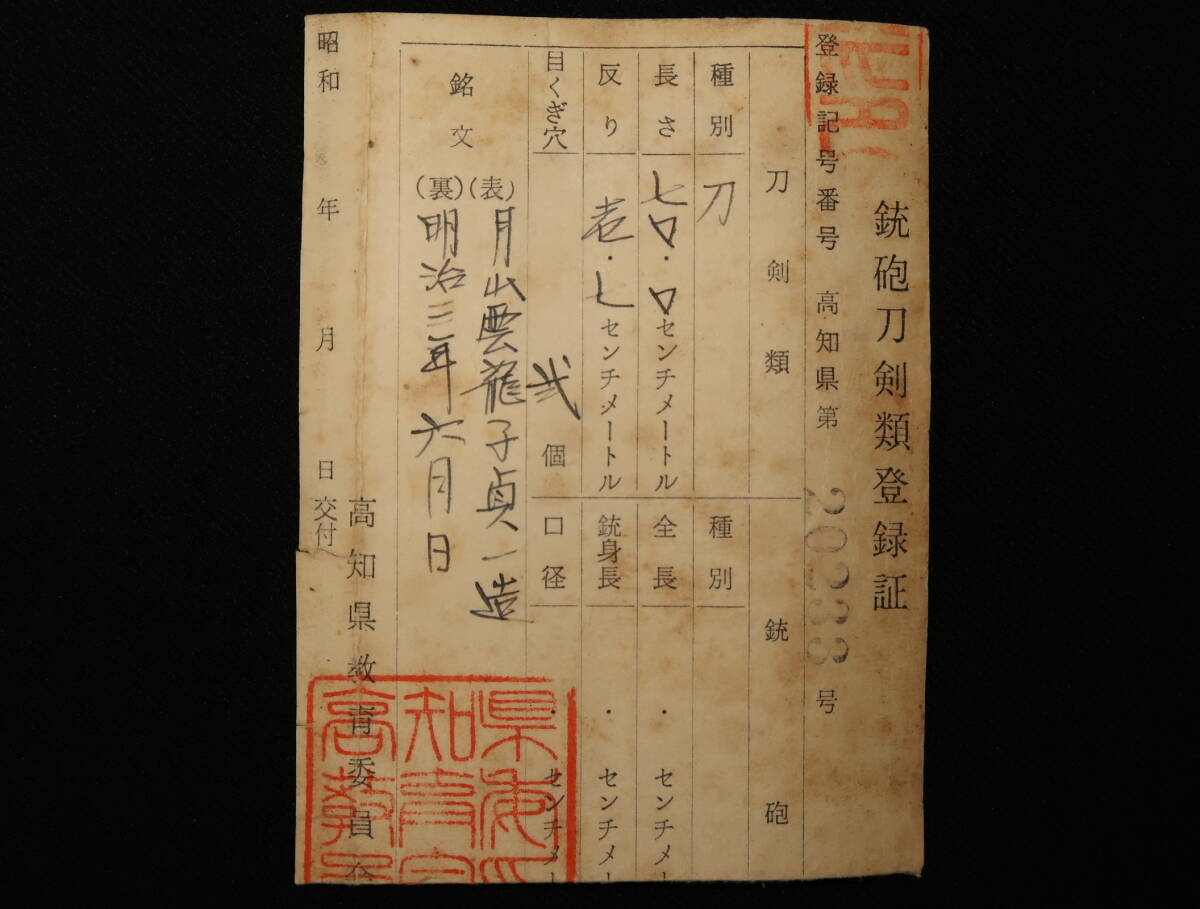 銃砲刀剣類登録証
登録記号番号 高知県第 20233 号
刀剣類 銃砲
種別 刀 種別
長さ 七〇・〇センチメートル 全長 ・ センチメー
反り 壱・七センチメートル 銃身長 ・ センチメー
目くぎ穴 弐個 口径 ・ センチメー
銘文 (表) 月山雲龍子貞一造
(裏) 明治三年六月日
高知県教育委員会
昭和 年 月 日交付